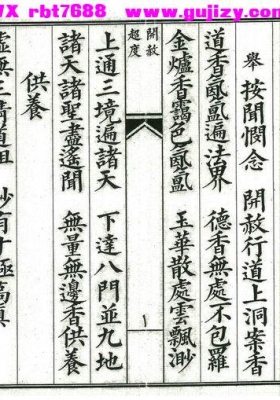 VX rbt7688 www.gujizy.com
舉 按聞憫念 開赦行道上洞案香
道香氤氳遍法界 德香無處不包羅
金爐香靄色氤氳 玉華散處雲飄渺
開赦
超度
一
上通三境遍諸天 下達八門並九地
諸天諸聖盡遙聞 無量無邊香供養
供養
虛無三清道祖 妙有十極高真